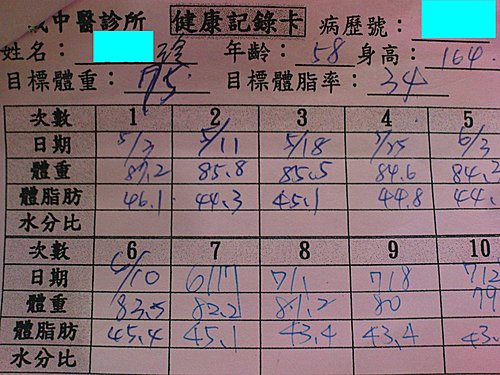 中醫診所 健康記錄卡 病歷號：
姓名： 年齡：58 身高：164
目標體重：75 目標體脂率：34
次數 1 2 3 4 5
日期 5/3 5/11 5/18 5/25 6/3
體重 87.2 85.8 85.5 84.6 84.2
體脂肪 46.1 44.3 45.1 44.8 44.
水分比
次數 6 7 8 9 10
日期 6/10 6/17 7/1 7/8
體重 83.5 82.2 81.2 80 79
體脂肪 45.4 45.1 43.4 43.4 43.
水分比